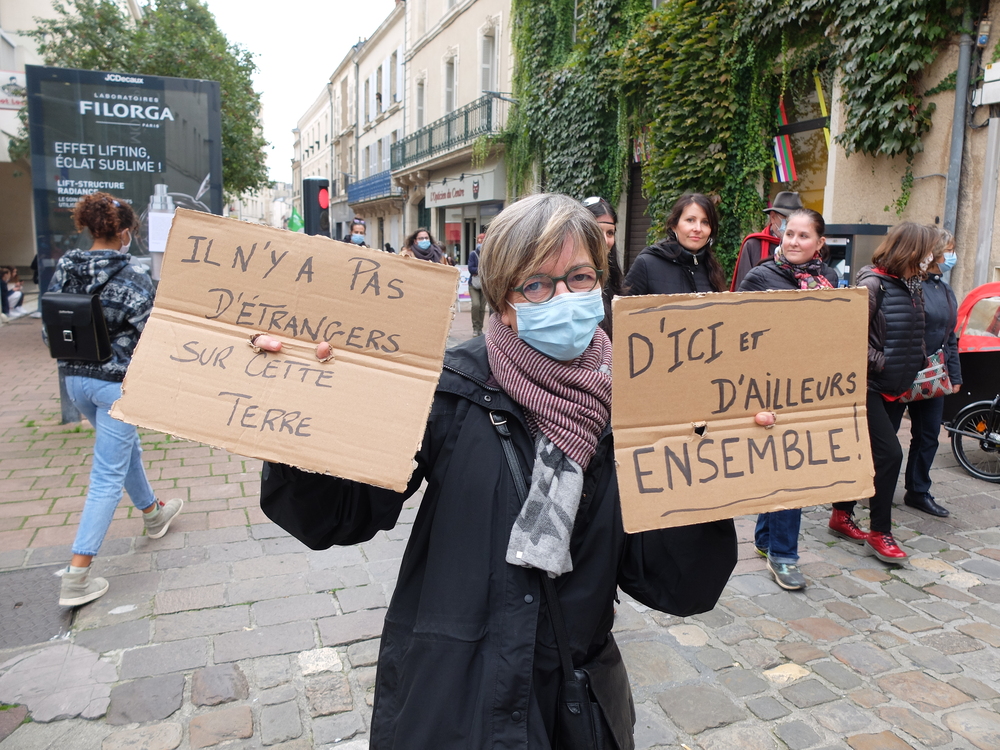 JCDecaux
LABORATOIRES
FILORGA
PARIS
EFFET LIFTING,
ÉCLAT SUBLIME !
LIFT-STRUCTURE
RADIANCE
IL N'Y A PAS
D'ÉTRANGERS
SUR CETTE
TERRE
D'ICI ET
D'AILLEURS
ENSEMBLE !